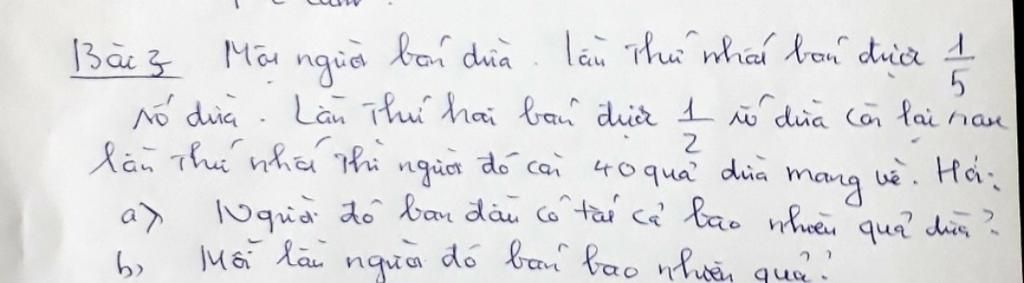 Bài 3 Một người bán dừa. lần thứ nhất bán được 1/5
số dừa. Lần thứ hai bán được 1/2 số dừa còn lại sau
lần thứ nhất thì người đó còn 40 quả dừa mang về. Hỏi:
a) Người đó ban đầu có tất cả bao nhiêu quả dừa?
b) Mỗi lần người đó bán bao nhiêu quả?